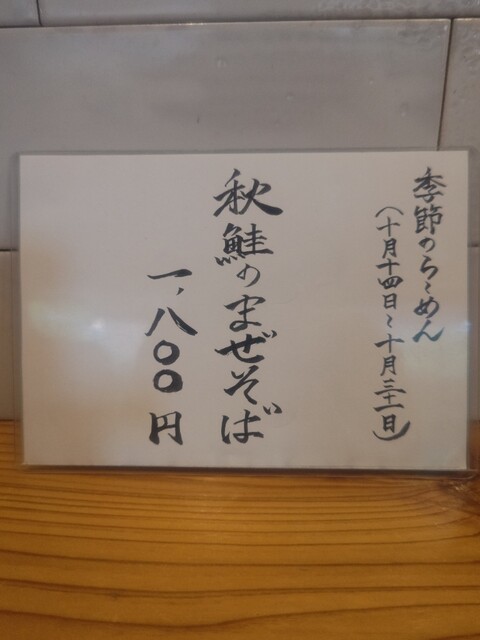 季節のら〜めん
(十月十四日〜十月三十一日)
秋鮭のまぜそば
一、八〇〇円